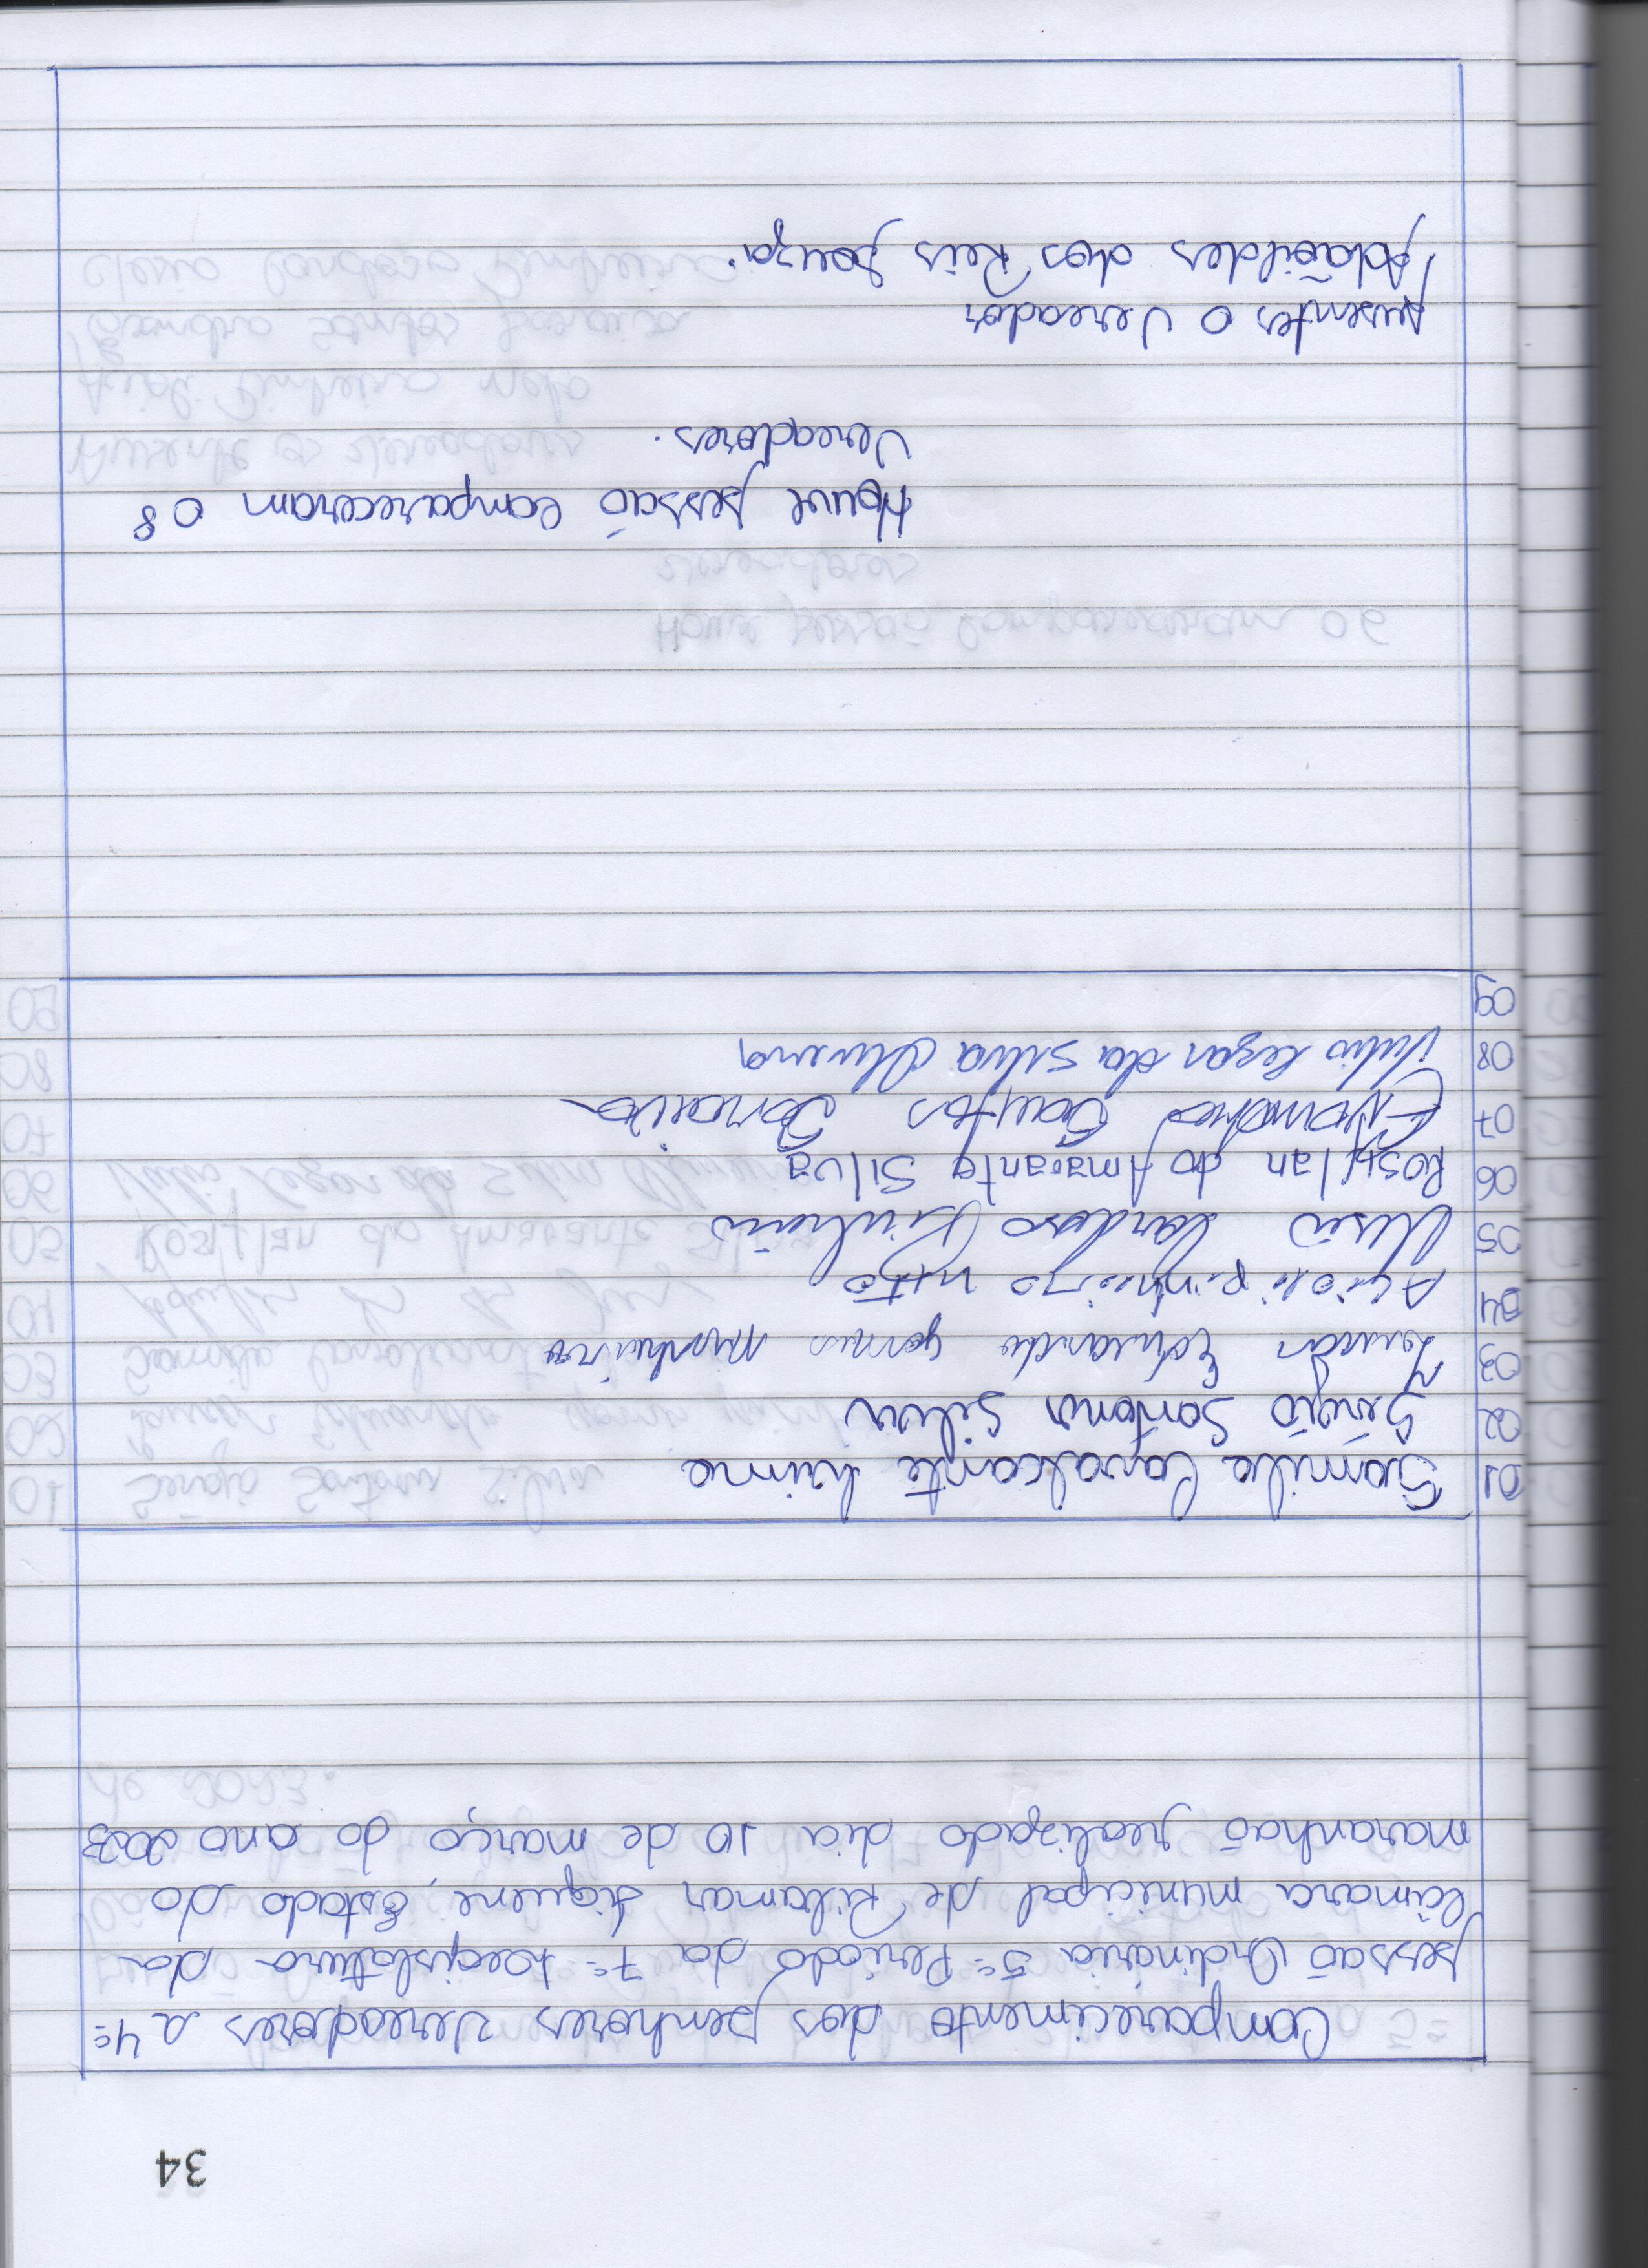 34
Comparecimento dos senhores Vereadores a 4ª
sessaõ Ordinária 5º Periodo da 7ª Legislatura da
Câmara municipal de Ribamar fiquene, Estado do
maranhaõ realizado dia 10 de março do ano 2023
01 Samilla Cavalcante Lima
02 Sérgio Santana Silva
03 Luan Eduardo gomes
04 Acioli pinheiro neto
05 Cardoso
06 Rosylan do Amarante Silva
07 Santos
08 Julio Cezar da Silva Oliveira
09
Houve sessaõ Compareceram 08
Vereadores.
Ausentes o Vereador
dos Reis Souza.